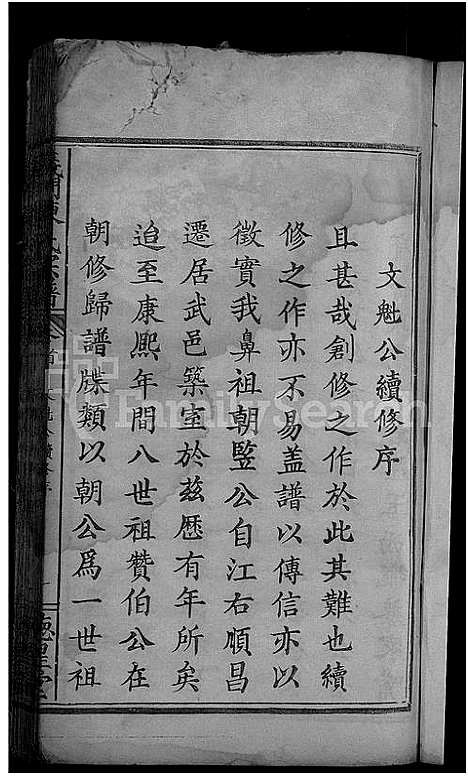 文魁公續修序
且甚哉創修之作於此其難也續
修之作亦不易盖譜以傳信亦以
徵實我鼻祖朝監公自江右順昌
遷居武邑築室於兹歷有年所矣
迨至康熙年間八世祖贊伯公在
朝修歸譜牒類以朝公爲一世祖
氏宗譜
FamilySearch